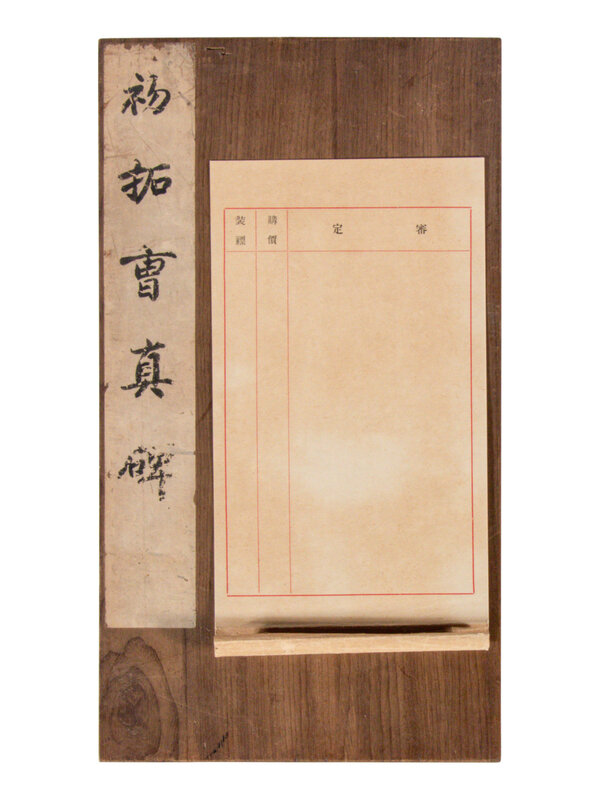 初拓曹真碑
審定
購價
裝褾